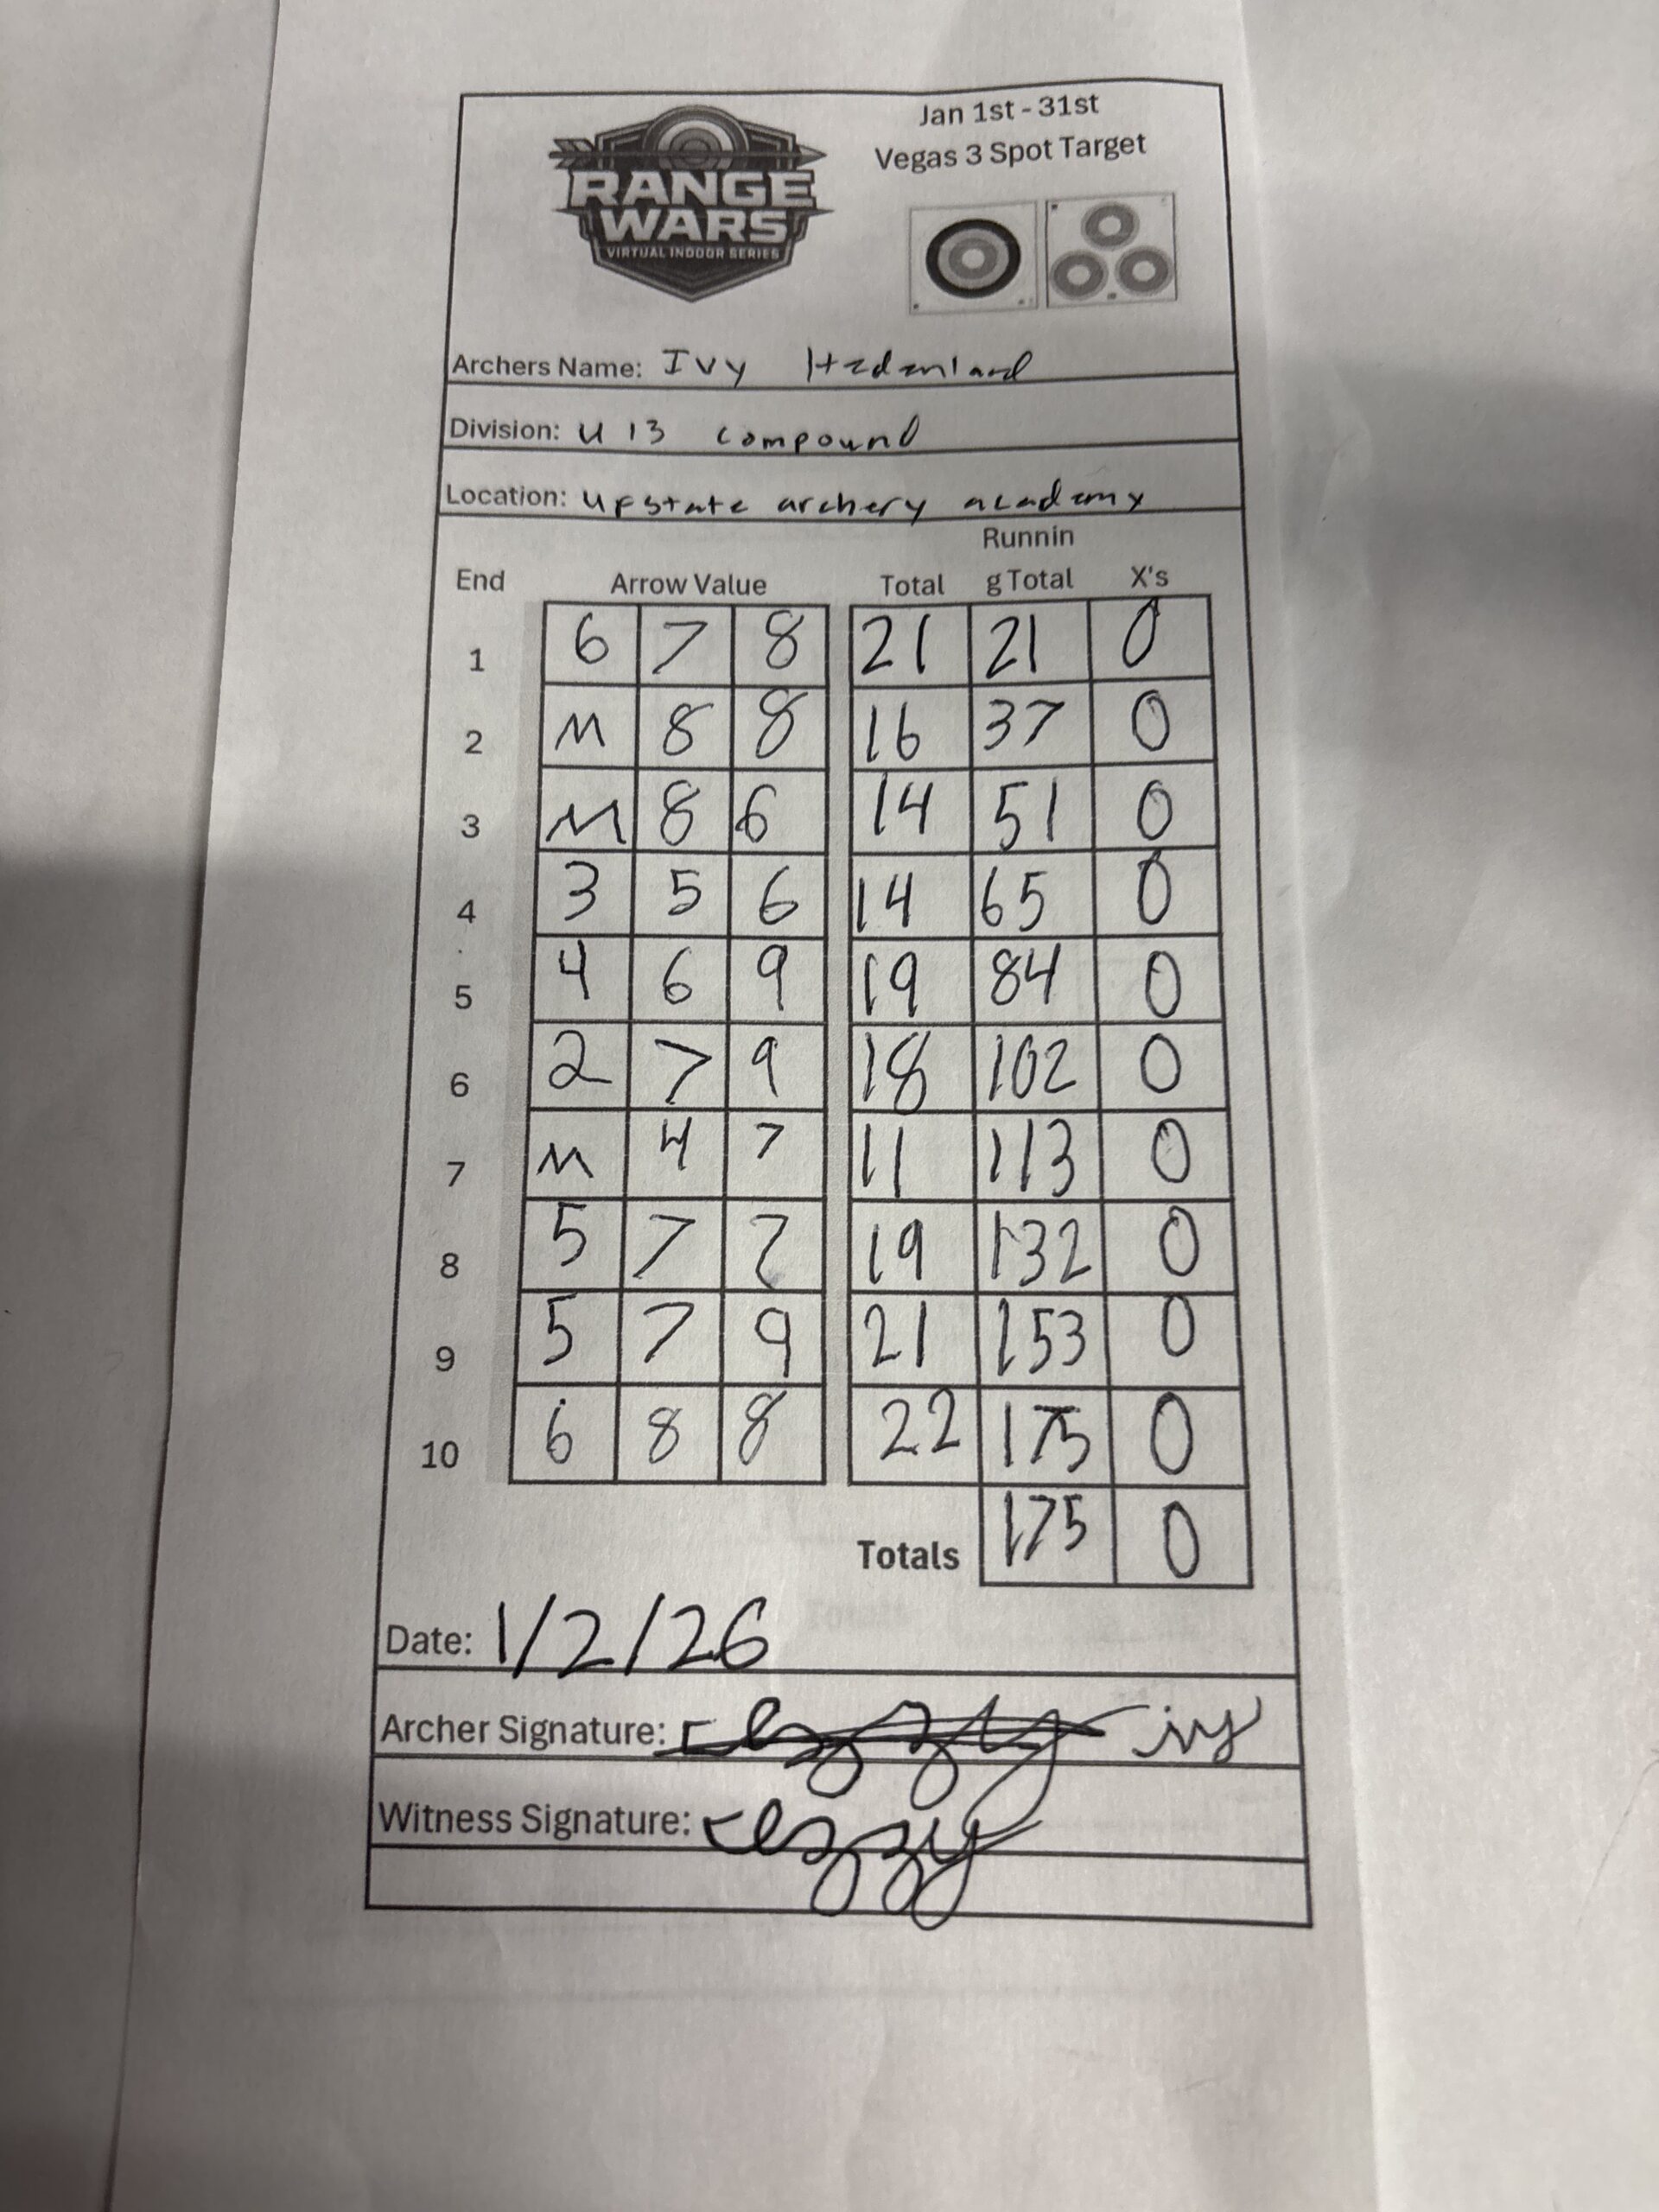 RANGE
WARS
VIRTUAL INDOOR SERIES
Jan 1st - 31st
Vegas 3 Spot Target
Archers Name: Ivy
Division: U 13 compound
Location: upstate archery academy
Runnin
End Arrow Value Total g Total X's
1 6 7 8 21 21 0
2 M 8 8 16 37 0
3 M 8 6 14 51 0
4 3 5 6 14 65 0
5 4 6 9 19 84 0
6 2 7 9 18 102 0
7 M 4 7 11 113 0
8 5 7 7 19 132 0
9 5 7 9 21 153 0
10 6 8 8 22 175 0
Totals 175 0
Date: 1/2/26
Archer Signature: ivy
Witness Signature: